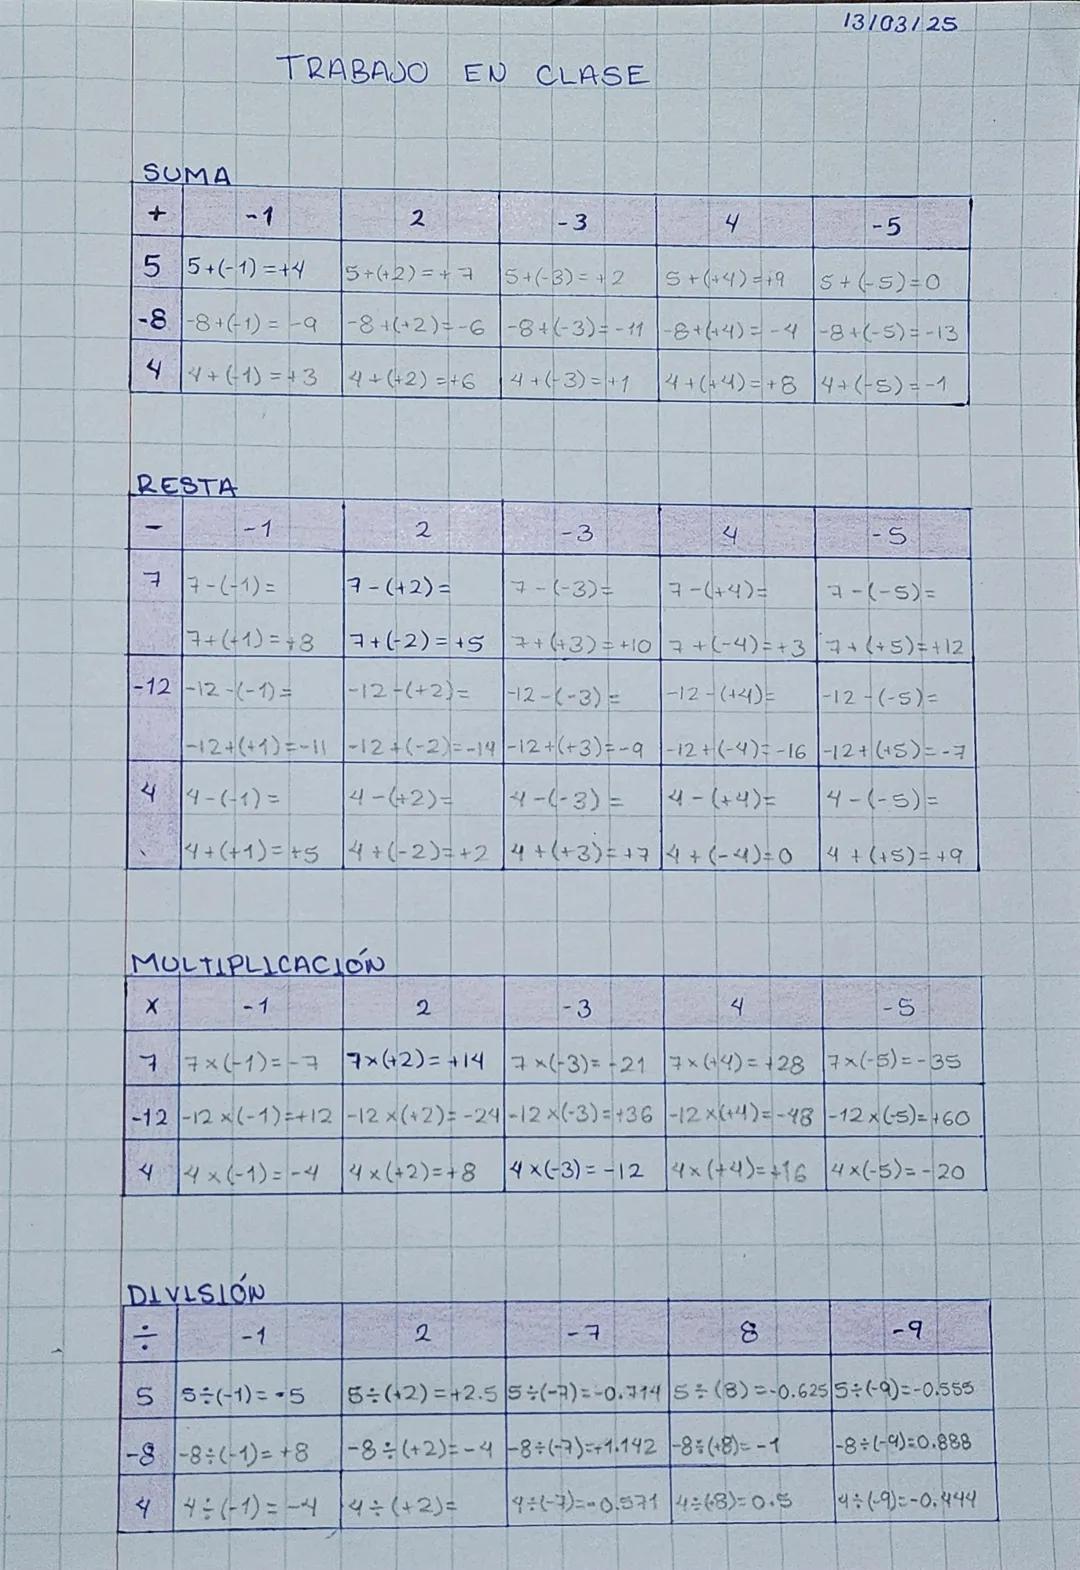 13/03/25
TRABAJO EN CLASE
SUMA
+ -1 2 -3 4 -5
5 5+(-1)=+4 5+(+2)=+7 5+(-3)=+2 5+(+4)=+9 5+(-5)=0
-8 -8+(-1)=-9 -8+(+2)=-6 -8+(-3)=-11 -8+(+4)=-4 -8+(-5)=-13
4 4+(-1)=+3 4+(+2)=+6 4+(-3)=+1 4+(+4)=+8 4+(-5)=-1
RESTA
- -1 2 -3 4 -5
7 7-(-1)= 7-(+2)= 7-(-3)= 7-(+4)= 7-(-5)=
7+(+1)=+8 7+(-2)=+5 7+(+3)=+10 7+(-4)=+3 7+(+5)=+12
-12 -12-(-1)= -12-(+2)= -12-(-3)= -12-(+4)= -12-(-5)=
-12+(+1)=-11 -12+(-2)=-14 -12+(+3)=-9 -12+(-4)=-16 -12+(+5)=-7
4 4-(-1)= 4-(+2)= 4-(-3)= 4-(+4)= 4-(-5)=
4+(+1)=+5 4+(-2)=+2 4+(+3)=+7 4+(-4)=0 4+(+5)=+9
MULTIPLICACIÓN
x -1 2 -3 4 -5
7 7x(-1)=-7 7x(+2)=+14 7x(-3)=-21 7x(+4)=+28 7x(-5)=-35
-12 -12x(-1)=+12 -12x(+2)=-24 -12x(-3)=+36 -12x(+4)=-48 -12x(-5)=+60
4 4x(-1)=-4 4x(+2)=+8 4x(-3)=-12 4x(+4)=+16 4x(-5)=-20
DIVISIÓN
÷ -1 2 -7 8 -9
5 5÷(-1)=-5 5÷(+2)=+2.5 5÷(-7)=-0.714 5÷(8)=-0.625 5÷(-9)=-0.555
-8 -8÷(-1)=+8 -8÷(+2)=-4 -8÷(-7)=+1.142 -8÷(+8)=-1 -8÷(-9)=0.888
4 4÷(-1)=-4 4÷(+2)= 4÷(-7)=-0.571 4÷(+8)=0.5 4÷(-9)=-0.444